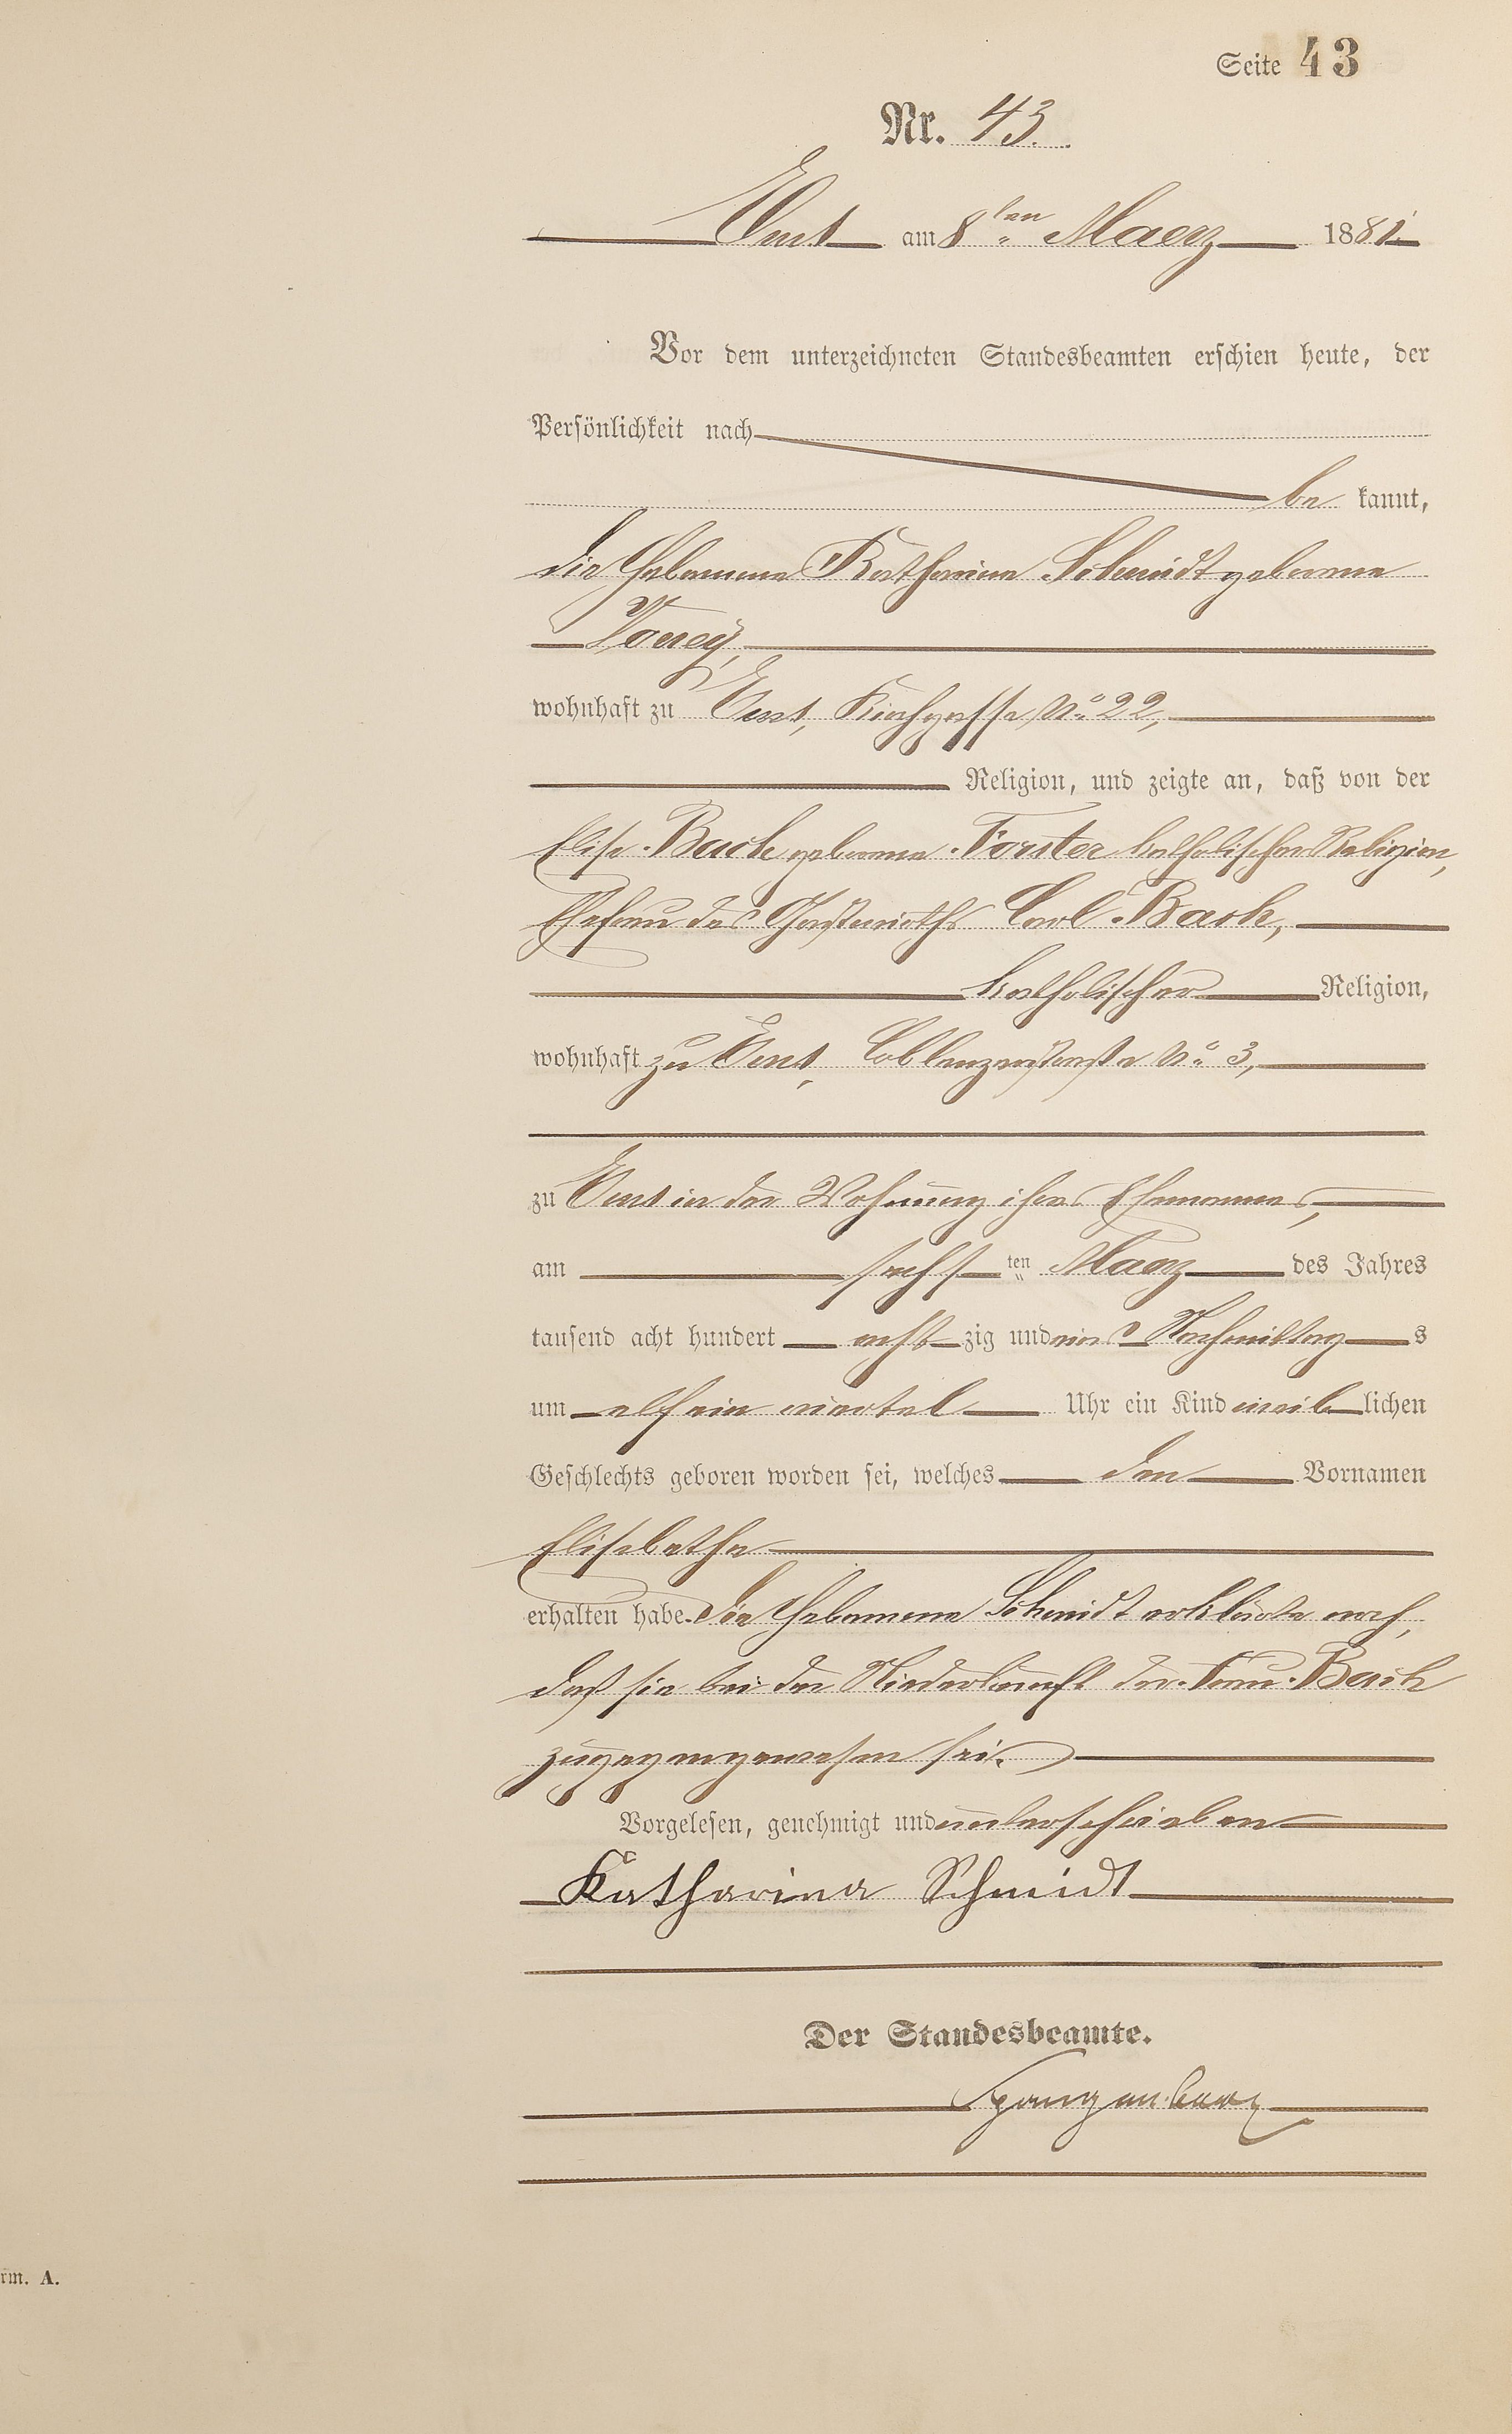 Seite 43
Nr. 43.
Ems am 8ten Maerz 1881.
Vor dem unterzeichneten Standesbeamten erschien heute, der
Persönlichkeit nach
be kannt,
die Hebamme Katharina Schmidt geborne
wohnhaft zu Ems, Kirchgasse No 22,
Religion, und zeigte an, daß von der
Elise Bach geborne Forster katholischer Religion,
Ehefrau des Gastwirths Carl Bach,
katholischer Religion,
wohnhaft zu Ems, Coblenzerstraße No 3,
zu Ems in der Wohnung ihres Ehemannes,
am sechs ten Maerz des Jahres
tausend acht hundert acht zig und eins Nachmittag s
um elf ein viertel Uhr ein Kind weib lichen
Geschlechts geboren worden sei, welches den Vornamen
Elisabetha
erhalten habe. Die Hebamme Schmidt erklärte noch,
daß sie bei der Niederkunft der Frau Bach
zugegen gewesen sei.
Vorgelesen, genehmigt und unterschrieben
Katharina Schmidt
Der Standesbeamte.
Spangenberg
rm. A.